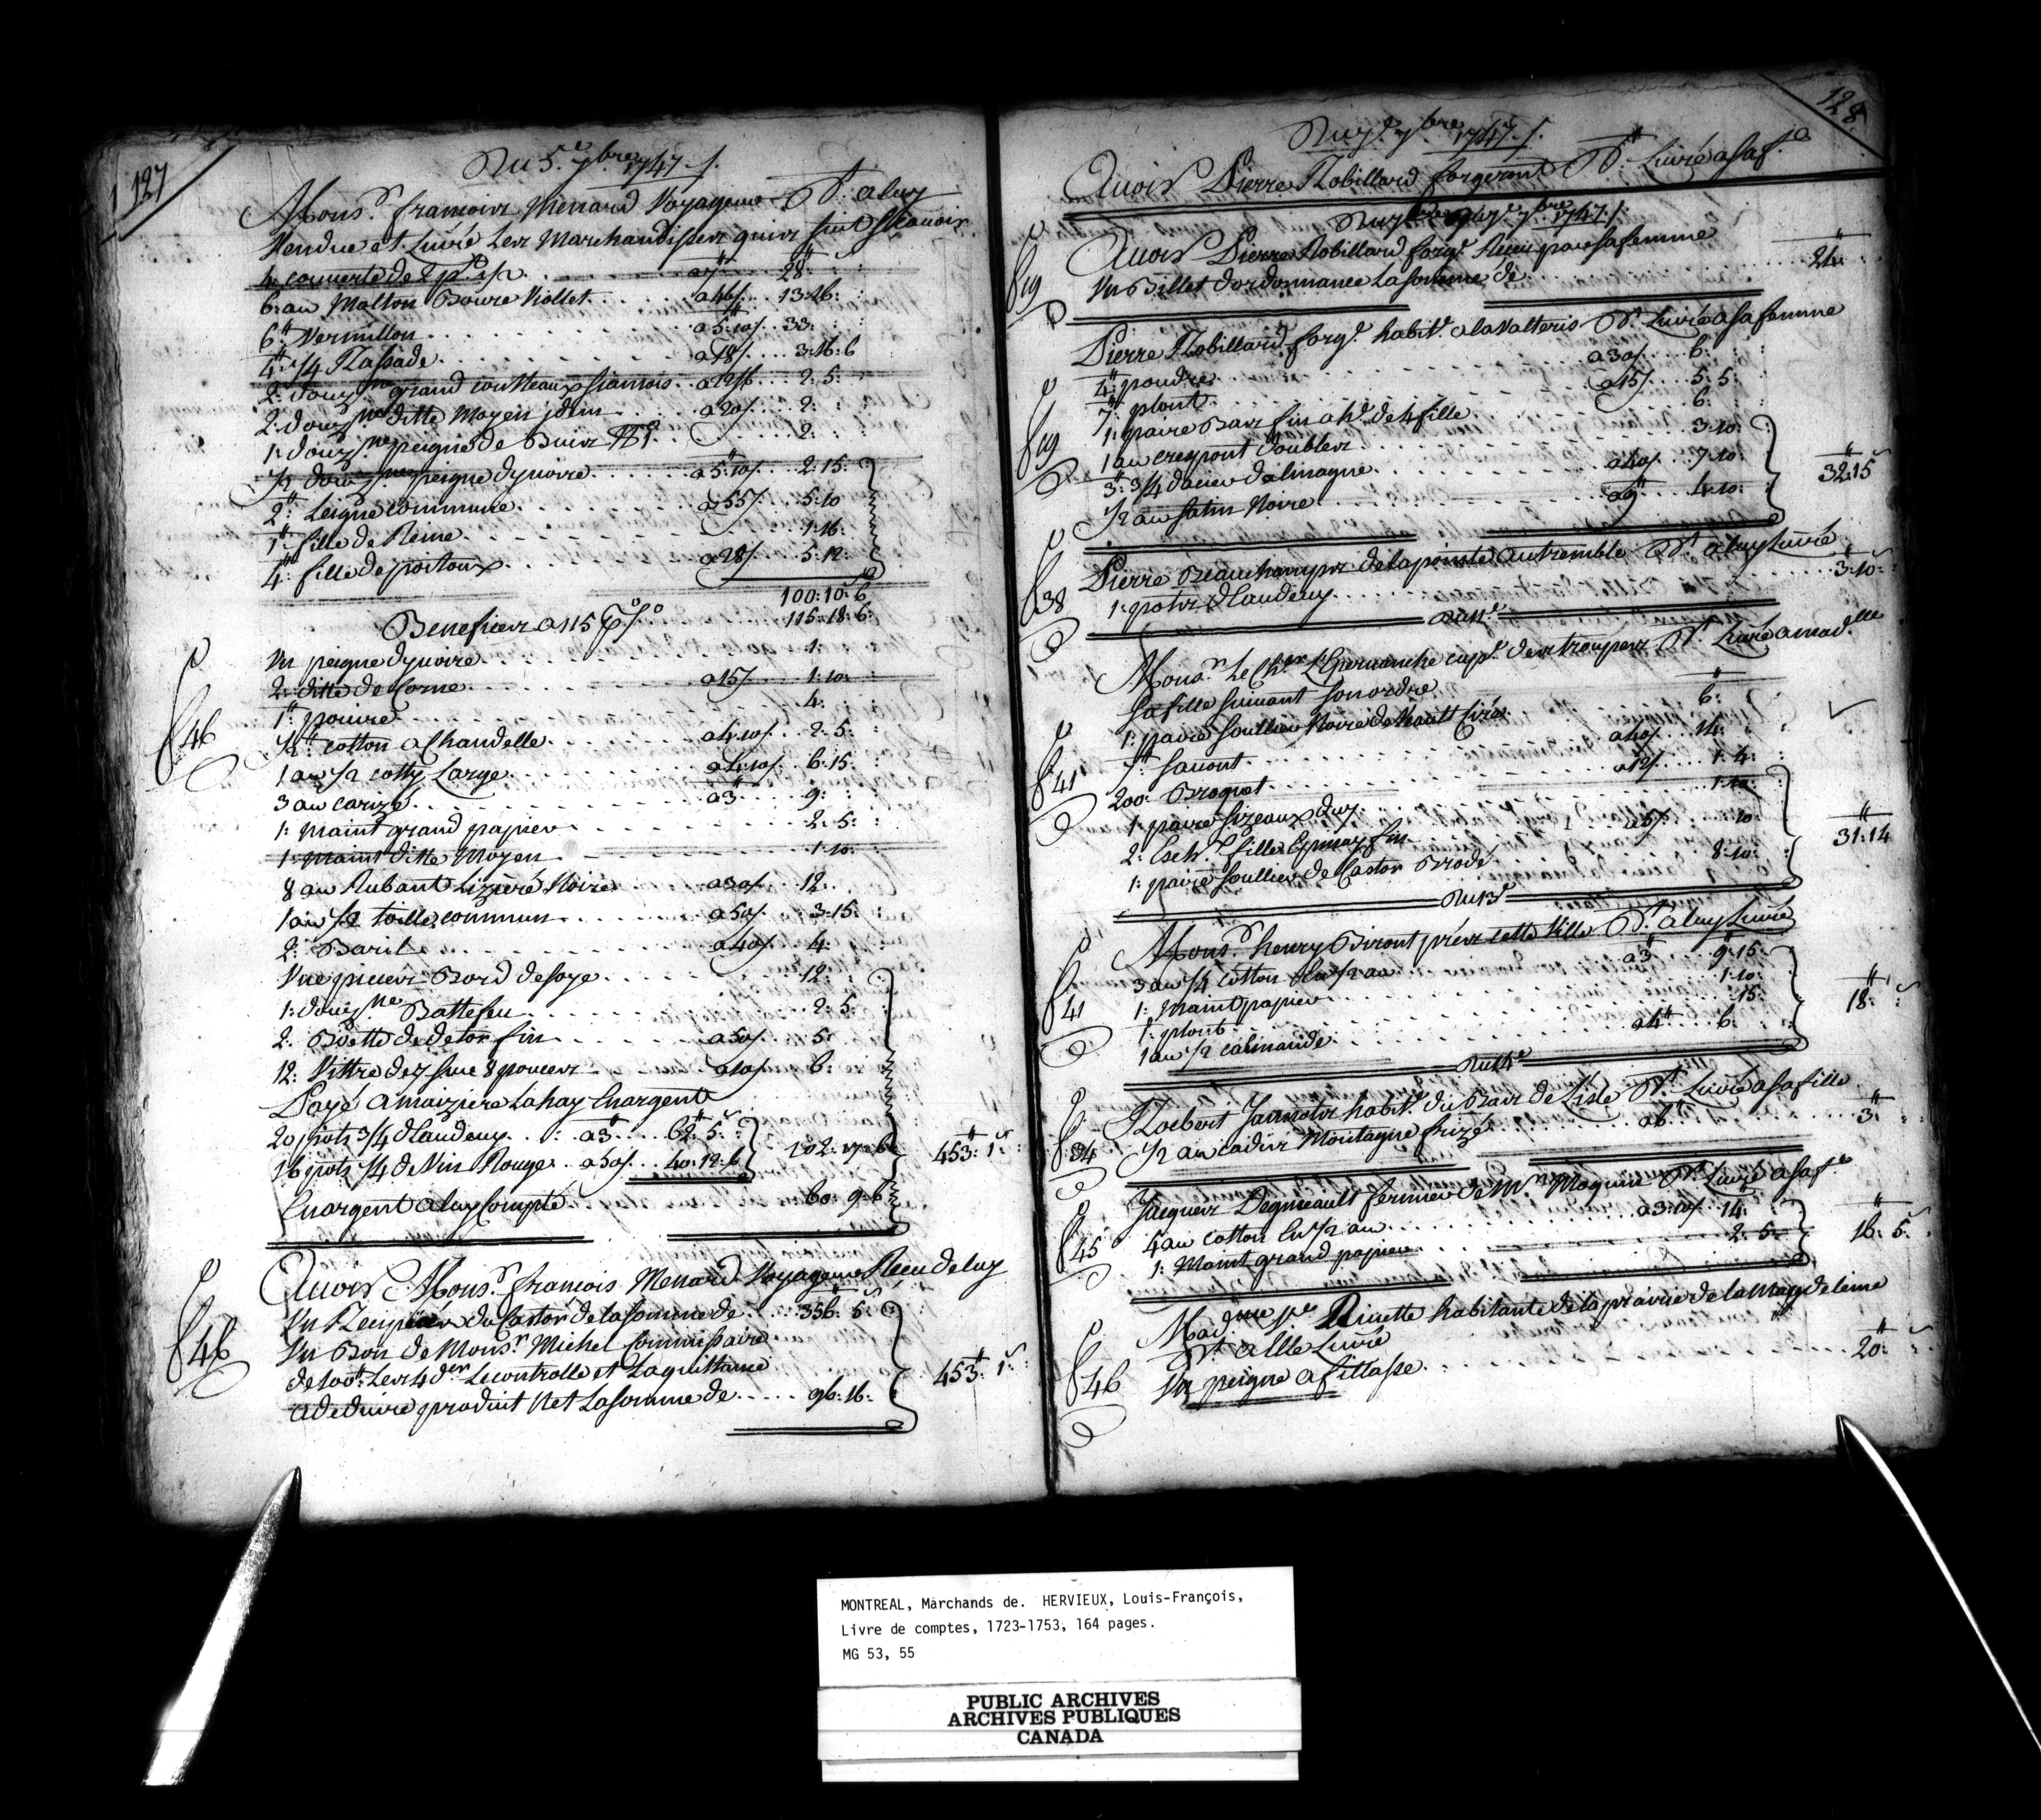 127
Du 5.e 7bre 1747 /.
Mons.r francoix Menard Voyageur D.t a luy
Vendue et Livré Les Marchandisses quis suit Scavoir
4: couverte de 2 p.t a7" 28":
6: au Molton Bource Viollet a46/ 13:16:
6": Vermillon a5":10/ 33:
4": 1/4 Rassade a18/ 3:16:6
2: douz.ne grand coutteaux francois a22/6 2:5:
2: douz.ne ditte Moyen jdem a20/ 2:
1: douz.ne peigne de Buis 2:
1/2 douz.ne peigne dyvoire a5":10/ 2:15:
2": Leigne commune a55/ 5:10
1": fille de Reine 1:16:
4": fille de poitoux a28/ 5:12:
100:10:6
Beneficer a 115 p% 115:18:6:
Un peigne dyvoire 1:
2: ditte de Corne a15/ 1:10:
1": poivre 4:
1/2" cotton a Chandelle a4:10/ 2:5:
1 au 1/2 cotty Large a4:10/ 6:15:
3 au carizé a3" 9:
1: maint grand papier 2:5:
1: maint ditte Moyen 1:10:
8 au Rubant Lizeré Noire a30/ 12:
1 au 1/2 toille commun a50/ 3:15:
2: Baril a40/ 4:
Une Bord de soye 12:
1: douz.ne Battefeu 2:5:
2: Boette de detor fin a50/ 5:
12: Vittre de 7 sur 8 poucer a10/ 6:
Payé a maiziere Lahay En argent
20 pots 3/4 dLaudeuy a3" 62":5:
16 pots 1/4 de Vin Rouge a50/ 40:12:6 102:17:6 453":1:
En argent a luy Compté 60:9:6
f 46
Avoir Mons.r francois Menard Voyageur Receu de luy
Un du Castor de la somme de 356":5:
Un Bon de Mons.r Michel Commissaire
de 100": Les 4 der Le controlle et Laquittance
a deduire produit Net La somme de 96:16: 453":1:
f 46
128
Du 7.e 7bre 1747 /.
Avoir Pierre Robillard forgeront D.t Livré a sa f.e
Du 7.e 7bre 1747 /.
Avoir Pierre Robillard forg.t Receu par sa femme
Un Billet dordonnance La somme de 24":
f 19
Pierre Robillard forg.t habit.t a lavalteris D.t Livré a sa femme
4": poudre a30/ 6:
7": plont a15/ 5:5:
1: paire Bas fin a h.e de 4 fille 6:
1 au crespont doubler 3:10:
3": 3/4 dacier dalmagne a40/ 7:10:
1/2 au satin Noire a9" 4:10: 32":15
f 19
Pierre Beauchamps de la pointe autremble D.t a luy Livré
1: pots dLaudeuy 3":10:
f 38
Du 11.e
Mons.r Le Ch.er cap.e des trouper D.t Livré a mad.lle
sa fille suivant son ordre
1: paire soullier Noire de Vault Ciré 6":
7": savont a40/ 14:
200: Broquet a12/ 1:4:
1: paire sizeaux 1:10:
2: Esch.r fille Epinay fin a5/ 10:
1: paire soullier de Castor Brodé 8:10: 31":14
f 41
Du 13.e
Mons.r henry Biront cette Ville D.t a luy Livré
3 au 1/4 cotton En 1/2 au a3" 9":15:
1: Maint papier 1:10:
1": plont 15:
1 au 1/2 calmande a4" 6: 18":
f 41
Du 14.e
Roebert Jannots habit.t du Bas de Lisle D.t Livré a sa fille
1/2 au cadis Montagne frizé a6" 3":
f 34
Jacques Degnieault fermier de M.r Moquin D.t Livré a sa f.e
4 au cotton En 1/2 au a3:10/ 14":
1: Maint grand papier 2:5: 16":5:
f 45
Mad.me habitante de la prairie de la Magdeleine
D.t a Elle Livré
Un peigne a fillasse 20":
f 46
MONTREAL, Marchands de. HERVIEUX, Louis-François,
Livre de comptes, 1723-1753, 164 pages.
MG 53, 55
PUBLIC ARCHIVES
ARCHIVES PUBLIQUES
CANADA